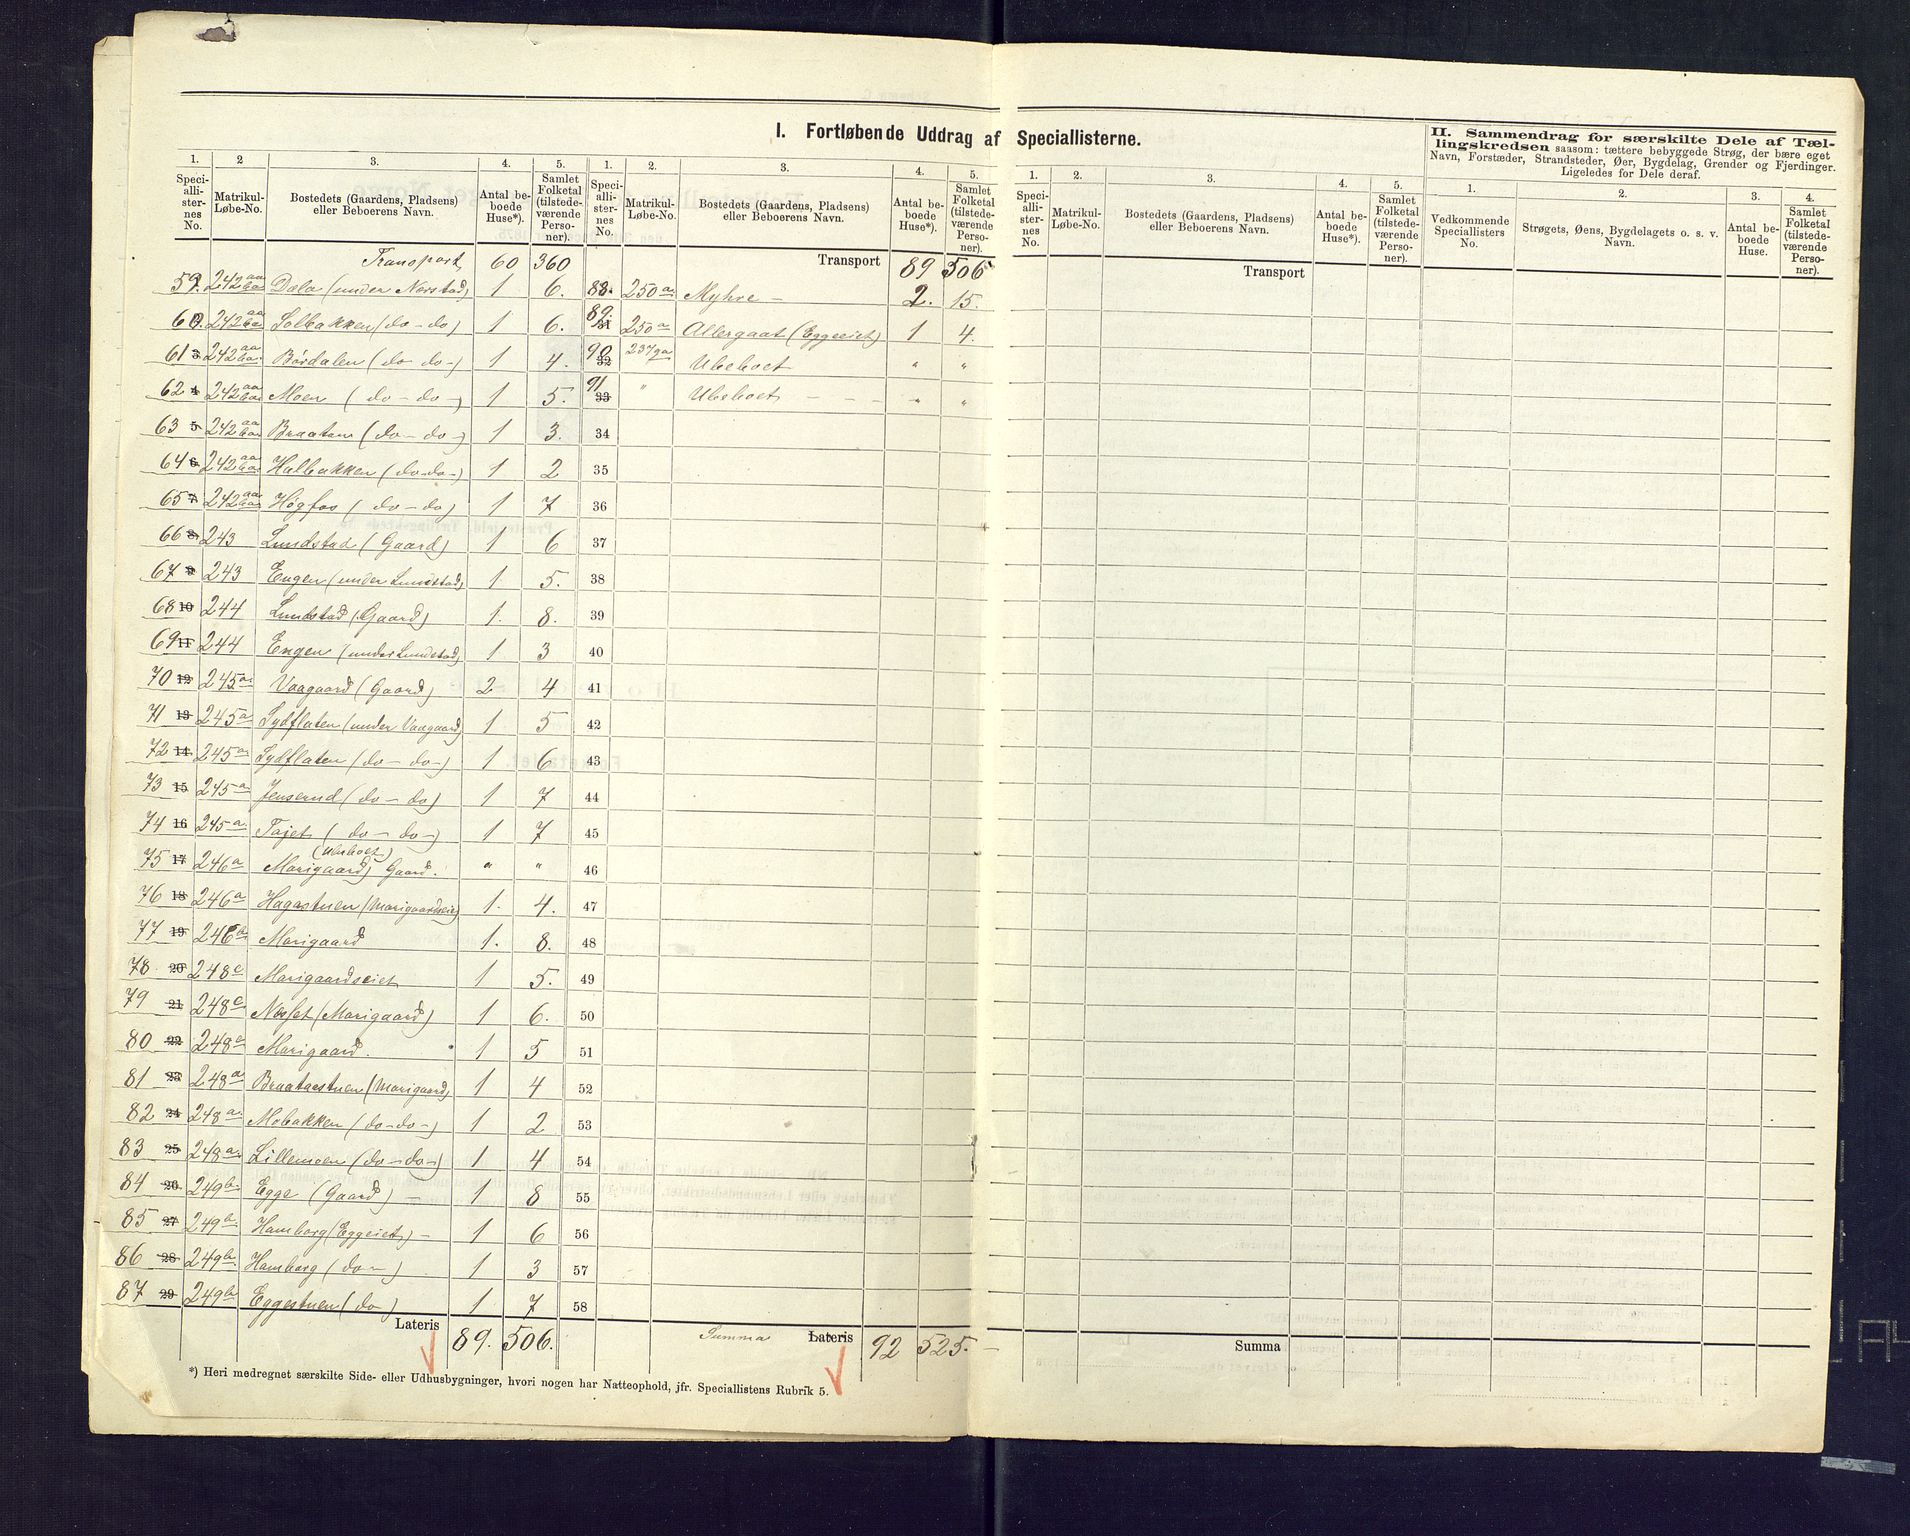 I. Fortløbende Uddrag af Speciallisterne.
II. Sammendrag for særskilte Dele af Tællingskredsen saasom: tættere bebyggede Strøg, der bære eget
Navn, Forstæder, Strandsteder, Øer, Bygdelag, Grender og Fjerdinger.
Ligeledes for Dele deraf.
1. 2 3. 4. 5. 1. 2. 3. 4. 5. 1. 2. 3. 4. 5. 1. 2. 3. 4.
Speciallisternes No. Matrikul-Løbe-No. Bostedets (Gaardens, Pladsens) eller Beboerens Navn. Antal beboede Huse*). Samlet Folketal (tilstedeværende Personer).
Speciallisternes No. Matrikul-Løbe-No. Bostedets (Gaardens, Pladsens) eller Beboerens Navn. Antal beboede Huse*). Samlet Folketal (tilstedeværende Personer).
Speciallisternes No. Matrikul-Løbe-No. Bostedets (Gaardens, Pladsens) eller Beboerens Navn. Antal beboede Huse*). Samlet Folketal (tilstedeværende Personer).
Vedkommende Speciallisters No. Strøgets, Øens, Bygdelagets o. s. v. Navn. Antal beboede Huse. Samlet Folketal (tilstedeværende Personer).
Transport 60 360
59. 242 aa Dæla (under Norstad) 1 6.
60. 242 aa Solbakken (do-do) 1 6.
61 3 242 aa Børdalen (do do-) 1 4.
62 4 242 aa Moen (do-do-) 1 5.
63 5 242 aa Braaten (do-do-) 1 3.
64 6 242 aa Halbakken (do-do-) 1 2
65 7 242 aa Høgfos (do-do) 1 7
66 8 243 Lundstad (Gaard) 1 6
67 9 243 Engen (under Lundstad) 1 5.
68 10 244 Lundstad (Gaard) 1. 8.
69 11 244 Engen (under Lundstad) 1 3
70 12 245a Vaagaard (Gaard) 2 4
71 13 245a Sydflaten (under Vaagaard) 1 5
72 14 245a Sydflaten (do-do-) 1 6
73 15 245a Jenserud (do-do) 1 7
74 16 245a. Tajet (do-do-) 1 7
(Ubeboet)
75 17 246a Marigaard, Gaard. " "
76 18 246a Hagastuen (Marigaardseie) 1. 4.
77 19 246a Marigaard 1. 8.
78 20 248c Marigaardseiet 1 5.
79 21 248c Næsset (Marigaard) 1 6.
80 22 248a Marigaard. 1 5
81 23 248a Braatastuen (Marigaard) 1 4
82 24 248a. Mobakken (do-do-) 1 2
83 25 248a. Lillemoen (do-do-) 1 4
84 26 249b. Egge (Gaard) - 1 8
85 27 249b. Hamborg (Eggeiet) - 1 6
86 28 249b. Hamborg (do-) 1 3
87 29 249b Eggestuen (do) 1 7
Lateris 89. 506.
Transport 89 506
88. 250a. Myhre - 2. 15.
89. 31 250a Allergaat (Eggeeiet) 1 4.
90 32 237ga Ubeboet " "
91 33 " Ubeboet - - - " "
34
35
36
37
38
39
40
41
42
43
44
45
46
47
48
49
50
51
52
53
54
55
56
57
58
Summa Lateris 92 525.-
Transport
Summa
*) Heri medregnet særskilte Side- eller Udhusbygninger, hvori nogen har Natteophold, jfr. Speciallistens Rubrik 5.